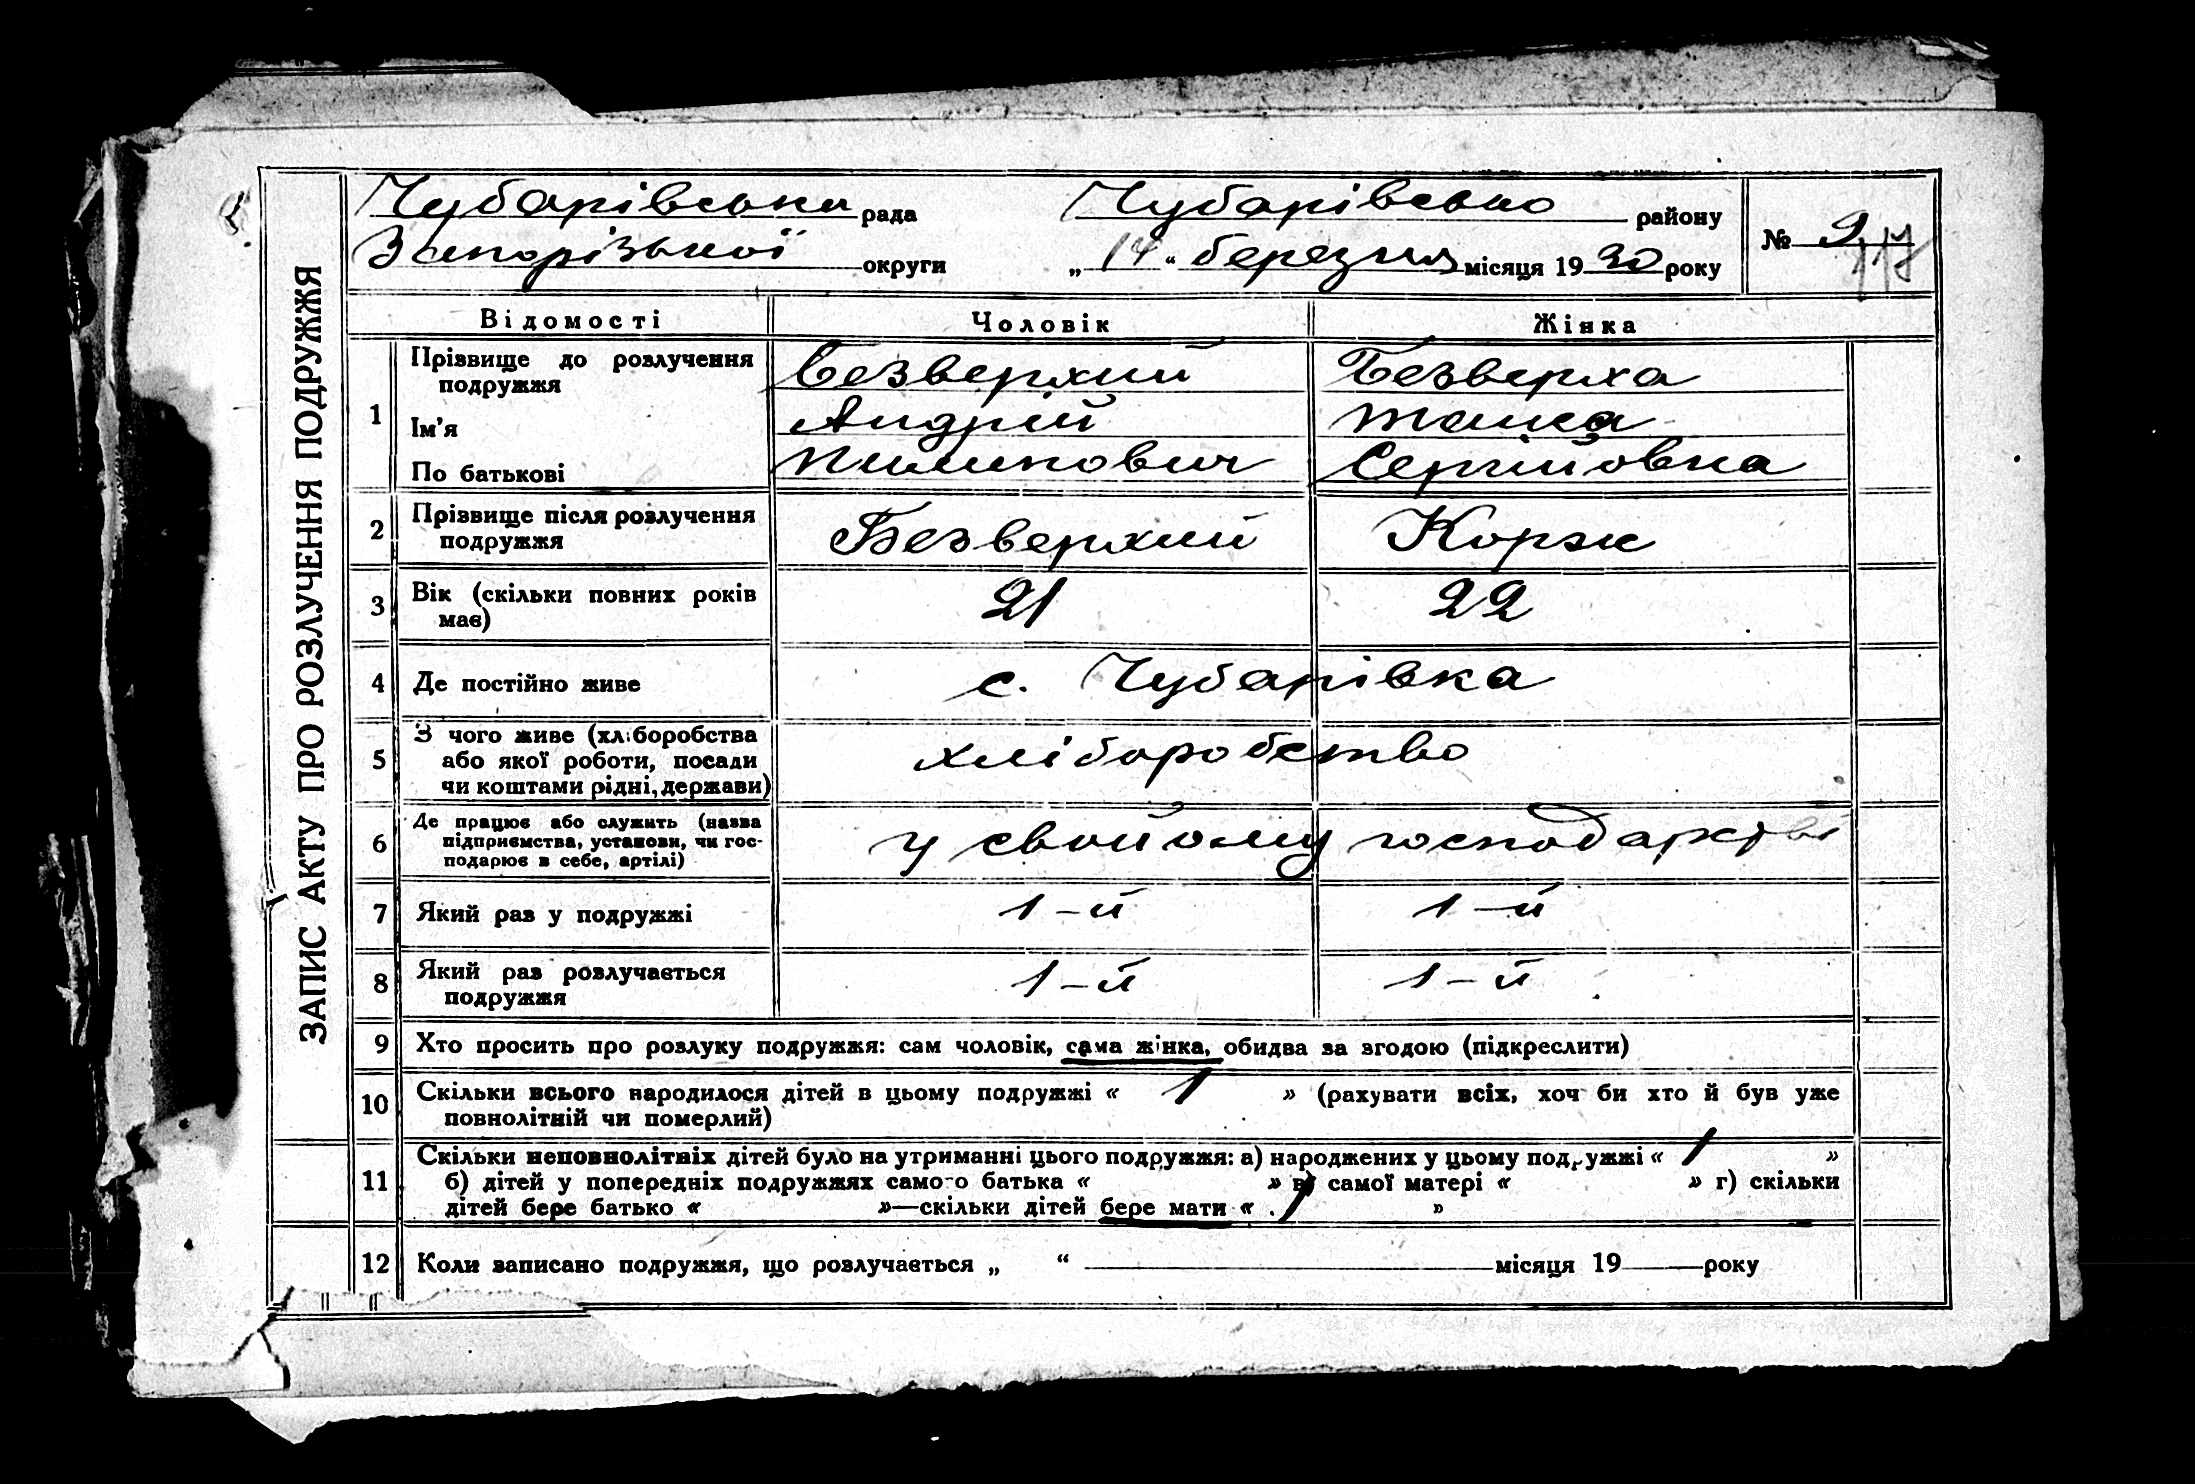 ЗАПИС АКТУ ПРО РОЗЛУЧЕННЯ ПОДРУЖЖЯ
Чубарівська рада Чубарівсько району № 9
Запорізької округи „ 14 “ березня місяця 1930 року
Відомості Чоловік Жінка
1 Прізвище до розлучення подружжя Безверхий Безверха
Ім'я Андрій
По батькові Пилипович Сергіївна
2 Прізвище після розлучення подружжя Безверхий Корж
3 Вік (скільки повних років має) 21 22
4 Де постійно живе с. Чубарівка
5 З чого живе (хліборобства
або якої роботи, посади
чи коштами рідні, держави) хліборобство
6 Де працює або служить (назва
підприємства, установи, чи гос-
подарює в себе, артілі) у свойому господарстві
7 Який раз у подружжі 1-й 1-й
8 Який раз розлучається
подружжя 1-й 1-й
9 Хто просить про розлуку подружжя: сам чоловік, сама жінка, обидва за згодою (підкреслити)
10 Скільки всього народилося дітей в цьому подружжі « 1 » (рахувати всіх, хоч би хто й був уже
повнолітній чи померлий)
11 Скільки неповнолітніх дітей було на утриманні цього подружжя: а) народжених у цьому подружжі « 1 »
б) дітей у попередніх подружжях самого батька « » в) самої матері « » г) скільки
дітей бере батько « »—скільки дітей бере мати « 1 »
12 Коли записано подружжя, що розлучається „ “ місяця 19 року